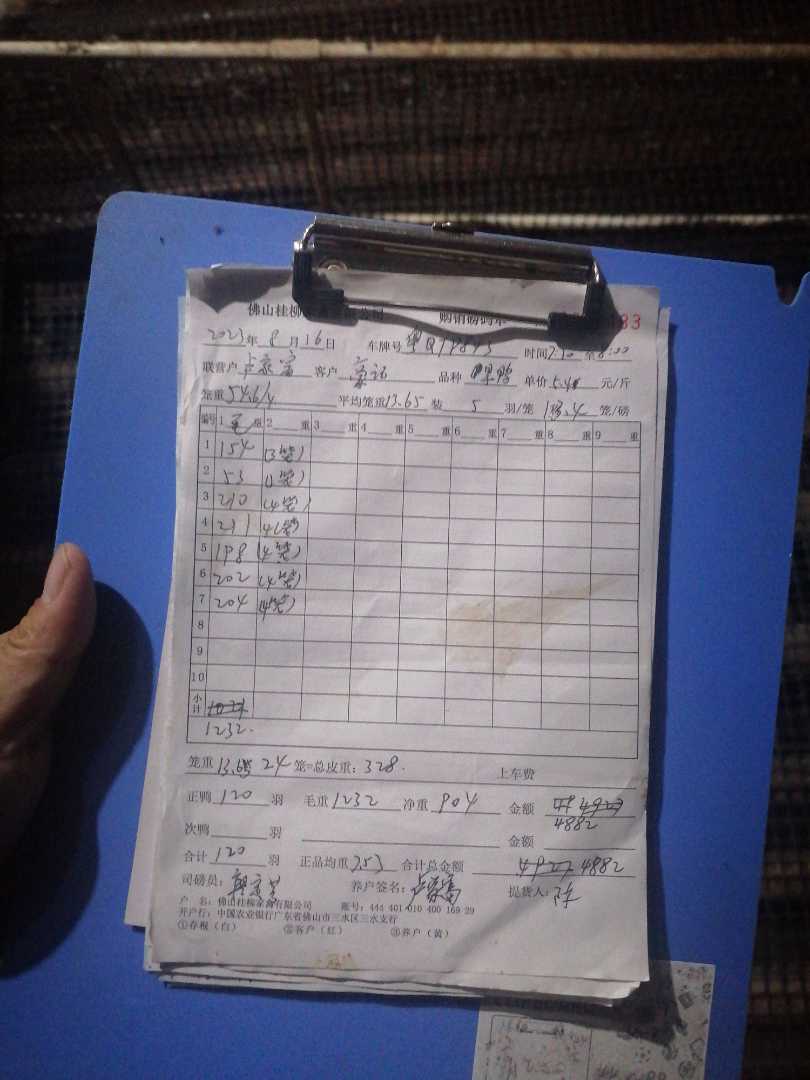 佛山桂柳 购销磅码单 83
2023年 8月16日 车牌号 时间7:10至8:00
联营户 卢家富 客户 品种 单价5.4 元/斤
笼重54.6/4 平均笼重13.65 装 5 羽/笼 笼/磅
编号 1 毛 重 2 重 3 重 4 重 5 重 6 重 7 重 8 重 9 重
1 154 (3笼)
2 53 (1笼)
3 210 (4笼)
4 211 4(笼)
5 198 (4笼)
6 202 (4笼)
7 204 (4笼)
8
9
10
小计
1232.
笼重 13.65 24 笼=总皮重: 328. 上车费
正鸭 120 羽 毛重 1232 净重 904 金额 4927
4882
次鸭 羽 金额
合计 120 羽 正品均重 7.53 合计总金额 4927 4882
司磅员: 养户签名: 卢家富 提货人:
户 名: 佛山桂柳家禽有限公司 账号: 444 401 010 400 169 29
开户行: 中国农业银行广东省佛山市三水区三水支行
①存根(白) ②客户(红) ③养户(黄)